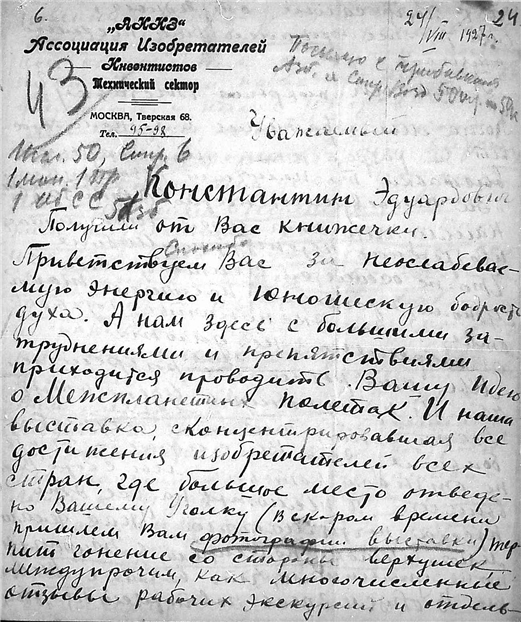 6.
24/VIII 1927г.
24
„АИИЗ"
Ассоциация Изобретателей
Инвентистов
Технический сектор
МОСКВА, Тверская 68.
Тел. 95-98
43
Посылаю с
50
Уважаемый
50, Стр. 6
Константин Эдуардович
Получили от Вас книжечки.
Спасибо
Приветствуем Вас за неослабевае-
мую энергию и юношескую бодрость
духа. А нам здесь с большими за-
труднениями и препятствиями
приходится проводить Вашу идею
о Межпланетных полетах. И наша
выставка, сконцентрировавшая все
достижения изобретателей всех
стран, где большое место отведе-
но Вашему Уголку (в скором времени
пришлем Вам фотографии выставки) тер-
пит гонение со стороны верхушек
междупрочим, как многочисленные
отзывы рабочих экскурсий и отдель-